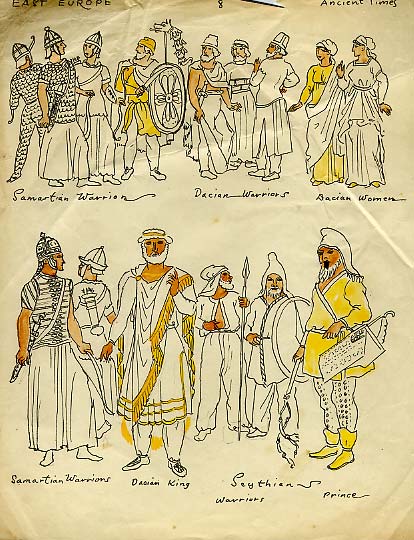 EAST EUROPE 8 Ancient Times
Samartian Warrion Dacian Warriors Dacian Women
Samartian Warriors Dacian King Scythian Prince
Warriors